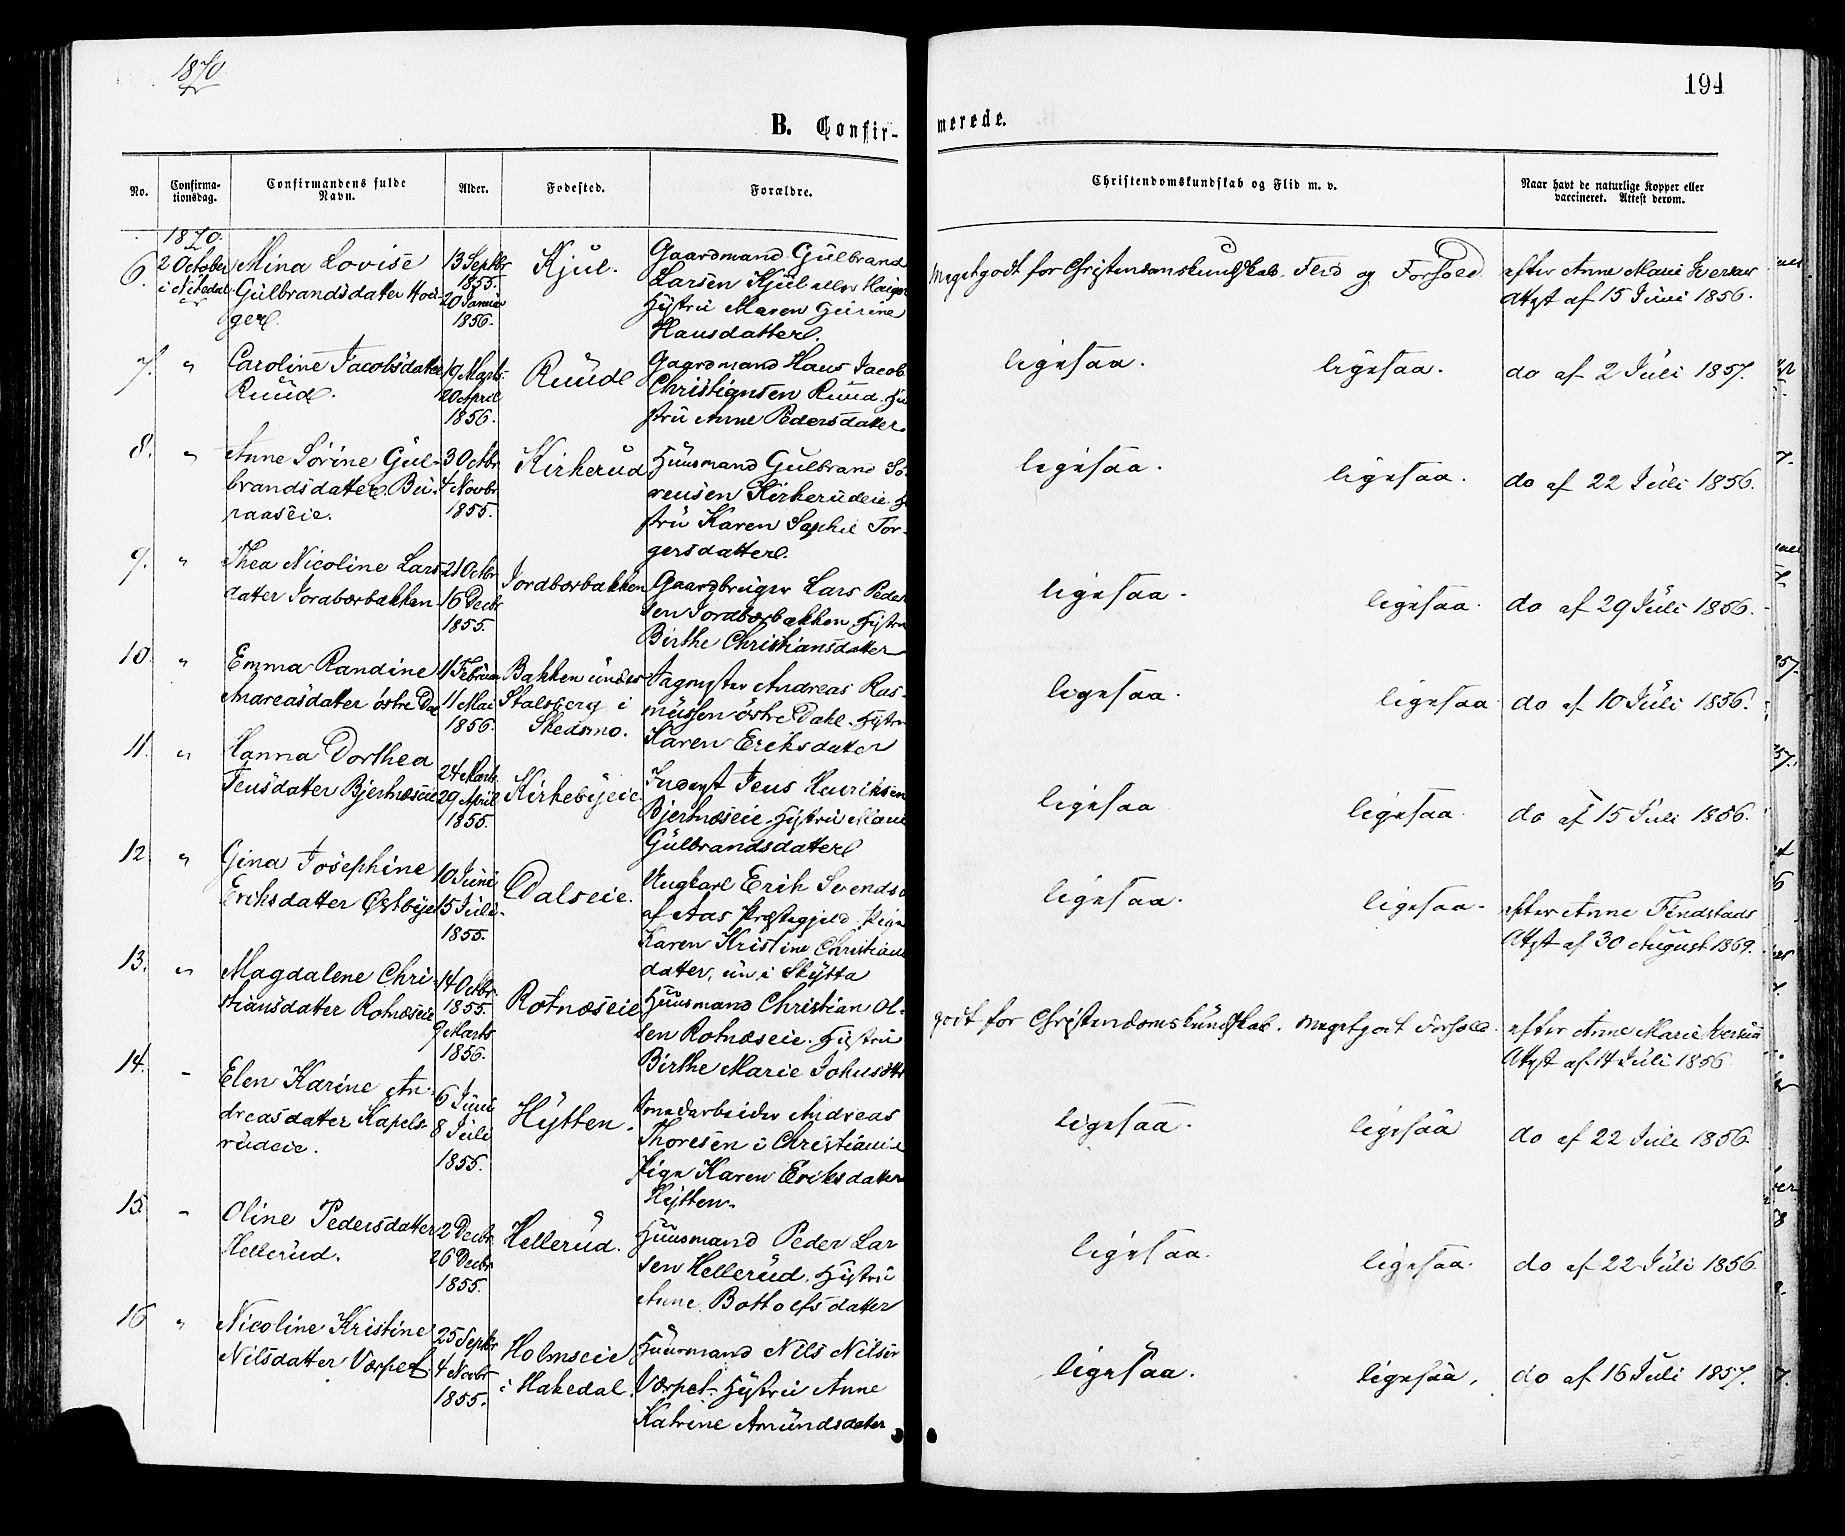 1870
194
B. Confir-
merede.
No.
Confirma-
tionsdag.
Confirmandens fulde
Navn.
Alder.
Fødested.
Forældre.
Christendomskundskab og Flid m. v.
Naar havt de naturlige Kopper eller
vaccineret. Attest derom.
1870.
6.
2 October
i Nitedal
Mina Lovise
Gulbrandsdatter
ger.
13 Septbr
1855.
20 Januar
1856.
Kjul.
Gaardmand Gulbrand
Larsen Kjul eller
Hustru Maren
Hansdatter.
Meget godt for Christendomskundskab. Flid og Forhold
efter Anne Marie
Attest af 15 Juni 1856.
7.
"
Caroline Jacobsdatter
Ruud.
19 Marts
20 April
1856.
Ruud
Gaardmand Hans Jacob
Christiansen Ruud. Hu
stru Anne Pedersdatter.
ligesaa.
ligesaa.
do af 2 Juli 1857.
8.
"
Anne Sørine Gul-
brandsdatter Bu-
raaseie.
3 Octbr
4 Novbr
1855.
Kirkerud
Huusmand Gulbrand Sø
rensen Kirkerudeie. Hu
stru Karen Sophie Tor-
gersdatter.
ligesaa.
ligesaa.
do af 22 Juli 1856.
9.
"
Thea Nicoline Lars-
datter Jordbærbakken
21 Octbr
16 Decbr
1855.
Jordbærbakken
Gaardbruger Lars Peder
sen Jordbærbakken. Hustru
Birthe Christiansdatter
ligesaa.
ligesaa.
do af 29 Juli 1856.
10.
"
Emma Randine
Andreasdatter østre Dal
11 Februar
11 Mai
1856.
Bakken under
Stalsberg i
Skedsmo.
Andreas Ras-
mussen østre Dahl. Hustru
Karen Eriksdatter
ligesaa.
ligesaa
do af 10 Juli 1856.
11.
"
Hanna Dorthea
Jensdatter Bjertnæseie
24 Marts
29 April
1855.
Kirkebyeie.
Inderst Jens Henriksen
Bjertnæseie. Hustru Marie
Gulbrandsdatter
ligesaa
ligesaa.
do af 15 Juli 1856.
12
"
Gina Josephine
Eriksdatter Østbye
10 Juni
15 Juli
1855.
Dalseie.
Ungkarl Erik Svendsen
af Aas Præstegjeld. Pige
Karen Kristine Christians
datter, i Skytta
ligesaa.
ligesaa.
efter Anne Findstads
Attest af 30 August 1869.
13.
"
Magdalene Chri-
stiansdatter Rotnæseie
14 Octbr
1855.
9 Marts
1856.
Rotnæseie
Huusmand Christian Ol-
sen Rotnæseie. Hustru
Birthe Marie Johnsdtr
godt for Christendomskundskab. Meget godt Forhold.
efter Anne Marie
Attest af 14 Juli 1856
14.
"
Elen Karine An-
dreasdatter Kapels-
rudeie.
6 Juni
8 Juli
1855.
Hytten.
Andreas
Thoresen i Christiania
Pige Karen Eriksdatter
Hytten.
ligesaa.
ligesaa
do af 22 Juli 1856.
15.
"
Oline Pedersdatter
Hellerud.
2 Decbr
26 Decbr
1855.
Hellerud.
Huusmand Peder Lar
sen Hellerud. Hustru
Anne Bottolfsdatter
ligesaa.
ligesaa.
do af 22 Juli 1856
16
"
Nicoline Kristine
Nilsdatter Værpet
25 Septbr
4 Novbr
1855.
Holmseie
i Hakedal.
Huusmand Nils Nilsen
Værpet. Hustru Anne
Katrine Amundsdatter
ligesaa.
ligesaa.
do af 16 Juli 1857.